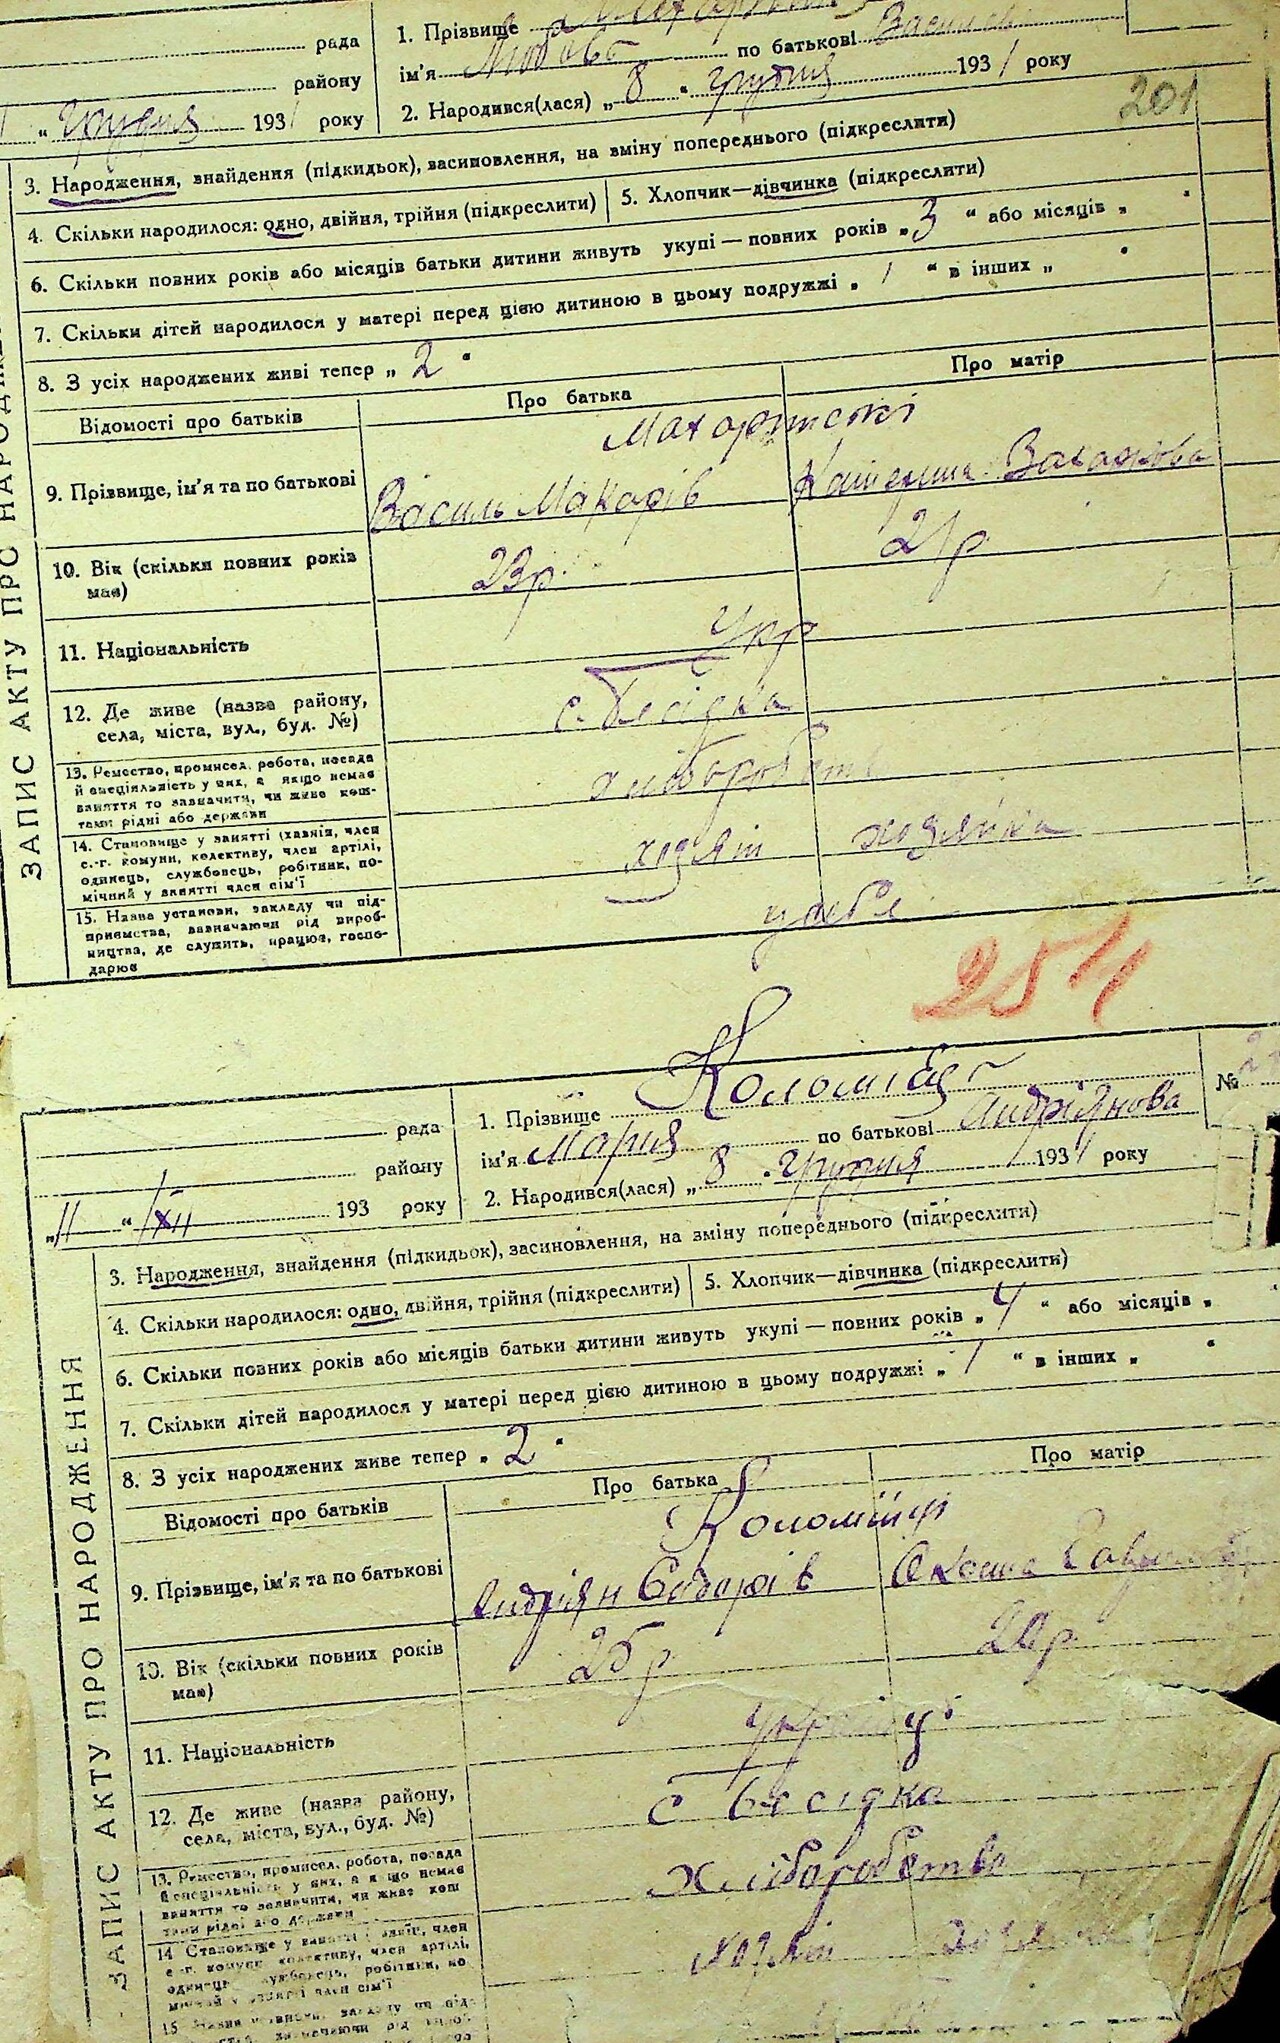 рада
району
" Грудня 193 1 року
1. Прізвище
ім'я Любовь по батькові
2. Народився(лася) „ 8 " грудня 193 1 року
201
ЗАПИС АКТУ ПРО НАРОДЖЕ
3. Народження, знайдення (підкидьок), засиновлення, на зміну попереднього (підкреслити)
4. Скільки народилося: одно, двійня, трійня (підкреслити) 5. Хлопчик—дівчинка (підкреслити)
6. Скільки повних років або місяців батьки дитини живуть укупі — повних років „ 3 " або місяців „ "
7. Скільки дітей народилося у матері перед цією дитиною в цьому подружжі „ 1 " в інших „ "
8. З усіх народжених живі тепер „ 2 "
Відомості про батьків Про батька Про матір
9. Прізвище, ім'я та по батькові
Василь Макарів Катерина
10. Вік (скільки повних років має) 23р. 21р
11. Національність Укр
12. Де живе (назва району, села, міста, вул., буд. №) с. Бесідка
13. Ремество, промисел, робота, посада
й спеціяльність у них, а якщо немає
заняття то зазначити, чи живе кош-
тами рідні або держави
хлібороб
14. Становище у занятті (хазяїн, член
с.-г. комуни, колективу, член артілі,
одинець, службовець, робітник, по-
мічний у занятті член сім'ї
хозяїн хозяйка
15. Назва установи, закладу чи під-
приємства, зазначаючи рід вироб-
ництва, де служить, працює, госпо-
дарює
у себе
251
№
рада
району
„ 11 " XII 193 року
1. Прізвище Коломієць
ім'я Мария по батькові Андріянова
2. Народився(лася) „ 8 " грудня 193 1 року
ЗАПИС АКТУ ПРО НАРОДЖЕННЯ
3. Народження, знайдення (підкидьок), засиновлення, на зміну попереднього (підкреслити)
4. Скільки народилося: одно, двійня, трійня (підкреслити) 5. Хлопчик—дівчинка (підкреслити)
6. Скільки повних років або місяців батьки дитини живуть укупі — повних років „ 4 " або місяців „ "
7. Скільки дітей народилося у матері перед цією дитиною в цьому подружжі „ 1 " в інших „ "
8. З усіх народжених живе тепер „ 2 "
Відомості про батьків Про батька Про матір
Коломійці
9. Прізвище, ім'я та по батькові Андріян
10. Вік (скільки повних років має) р р
11. Національність українці
12. Де живе (назва району, села, міста, вул., буд. №) с Бесідка
13. Ремество, промисел, робота, посада
й спеціяльність у них, а якщо немає
заняття то зазначити, чи живе кош
тами рідні або держави
Хліборобство
14 Становище у занятті хазяїн, член
с.-г. комуни колективу, член артілі,
одинець службовець, робітник, по
мічний у занятті член сім'ї
хозяїн
15 Назва установи, закладу чи під